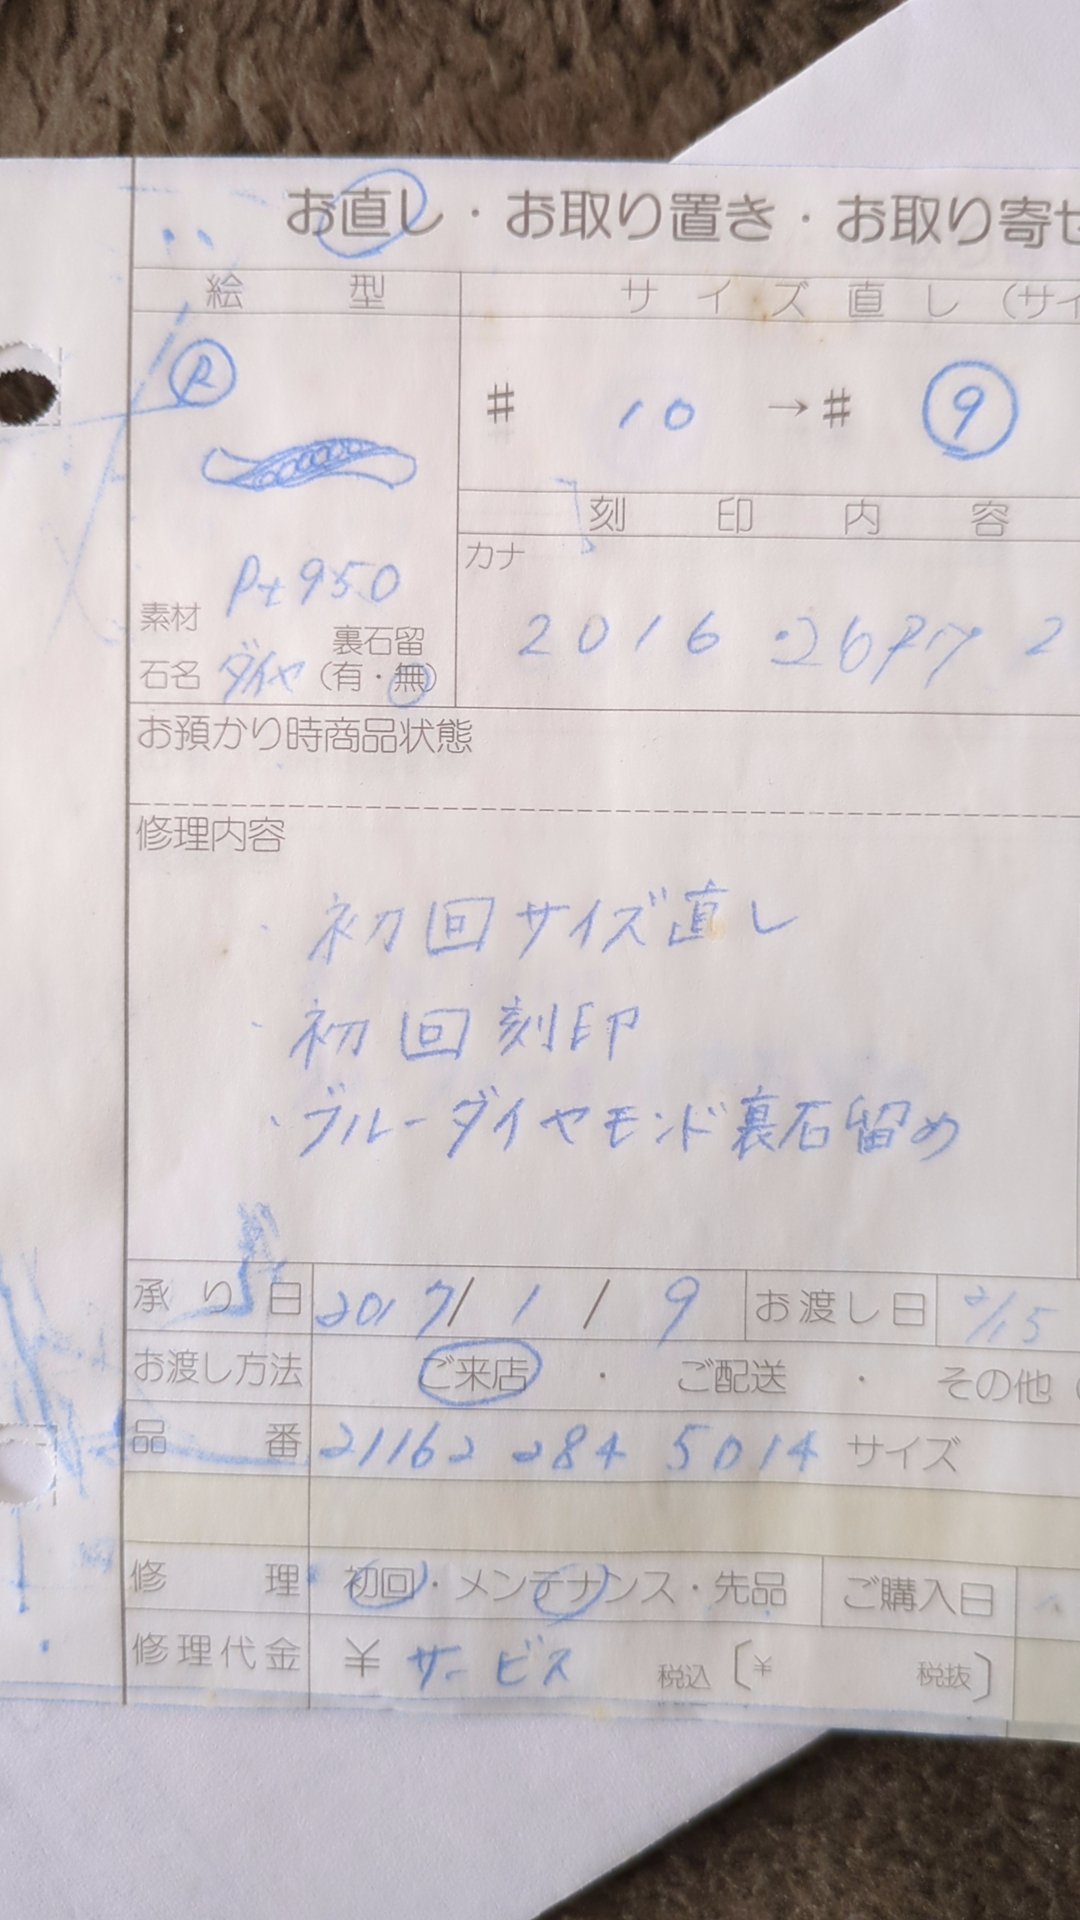 お直し・お取り置き・お取り寄せ
絵型
サイズ直し（サイ
R
# 10 → # 9
刻印内容
カナ
2016
Pt950
素材
裏石留
石名 ダイヤ （有・無）
お預かり時商品状態
修理内容
・初回サイズ直し
・初回刻印
・ブルーダイヤモンド裏石留め
承り日 2017/1/9 お渡し日 2/15
お渡し方法 ご来店・ご配送・その他（
品番 21162 284 5014 サイズ
修理 初回・メンテナンス・先品 ご購入日
修理代金 ¥ サービス 税込〔¥ 税抜〕